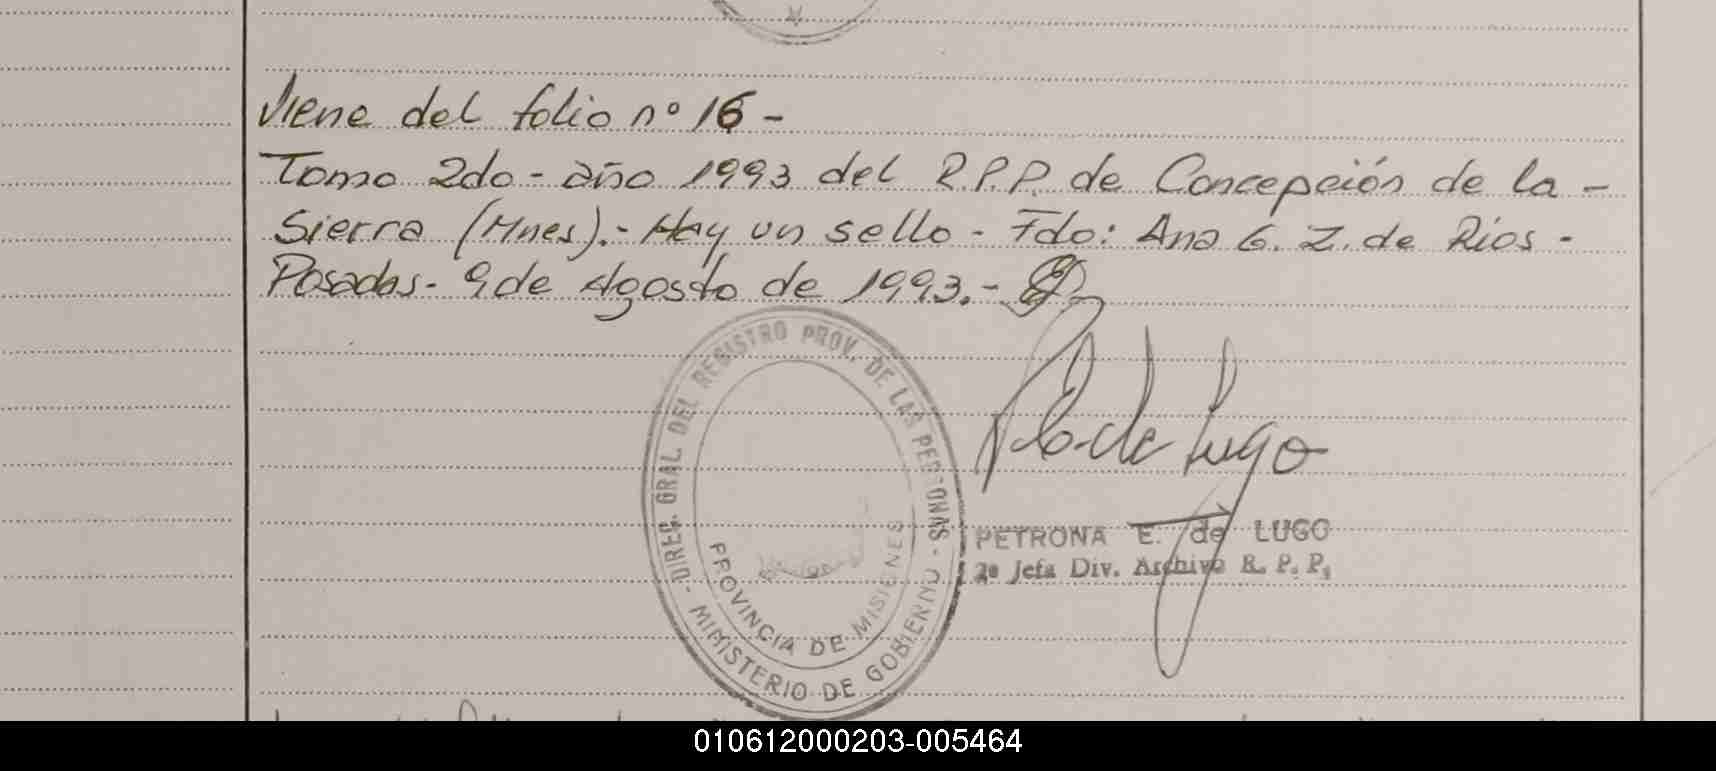 Viene del folio nº 16 -
Tomo 2do - año 1993 del R.P.P. de Concepción de la -
Sierra (Mnes).- Hay un sello - Fdo: Ana G. Z. de Rios -
Posadas - 9 de Agosto de 1993.-
- DIREC. GRAL. DEL REGISTRO PROV. DE LAS PERSONAS -
MINISTERIO DE GOBIERNO
PROVINCIA DE MISIONES
de Lugo
PETRONA E. de LUGO
2º Jefa Div. Archivo R. P. P.
010612000203-005464